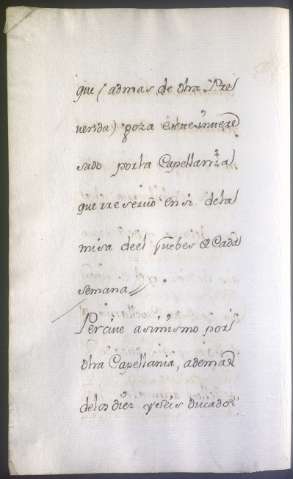 que (ademas de dha Pre
venda) goza este interé
sado por la Capellanía,
que reservò en si de la
misa de el Juebes de Cada
semana//
Percive asimismo por
dha Capellania, ademas
de los diez y seis ducados